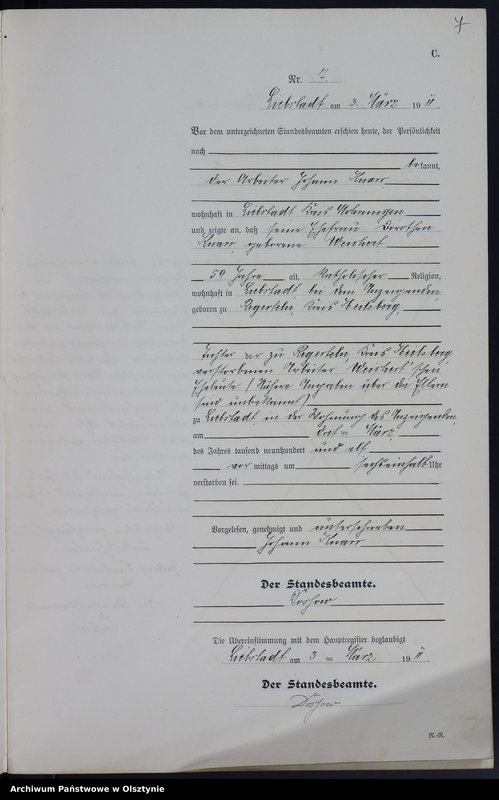 7
C.
Nr. 7.
Liebstadt am 3. März 1911.
Vor dem unterzeichneten Standesbeamten erschien heute, der Persönlichkeit
nach
bekannt,
der Arbeiter Johann Knarr
wohnhaft in Liebstadt Kreis Mohrungen
und zeigte an, daß seine Ehefrau Dorothea
Knarr geborene Weichert
59 Jahre alt, katholischer Religion,
wohnhaft in Liebstadt bei dem Anzeigenden,
geboren zu Regerteln, Kreis Heilsberg,
Tochter der zu Regerteln, Kreis Heilsberg,
verstorbenen Arbeiter Weichert'schen
Eheleute. (Nähere Angaben über die Eltern
sind unbekannt)
zu Liebstadt in der Wohnung des Anzeigenden,
am dritten März
des Jahres tausend neunhundert und elf
vor mittags um sechseinhalb Uhr
verstorben sei.
Vorgelesen, genehmigt und unterschrieben
Johann Knarr
Der Standesbeamte.
Die Übereinstimmung mit dem Hauptregister beglaubigt
Liebstadt am 3 ten März 1911.
Der Standesbeamte.
N.-R.
Archiwum Państwowe w Olsztynie